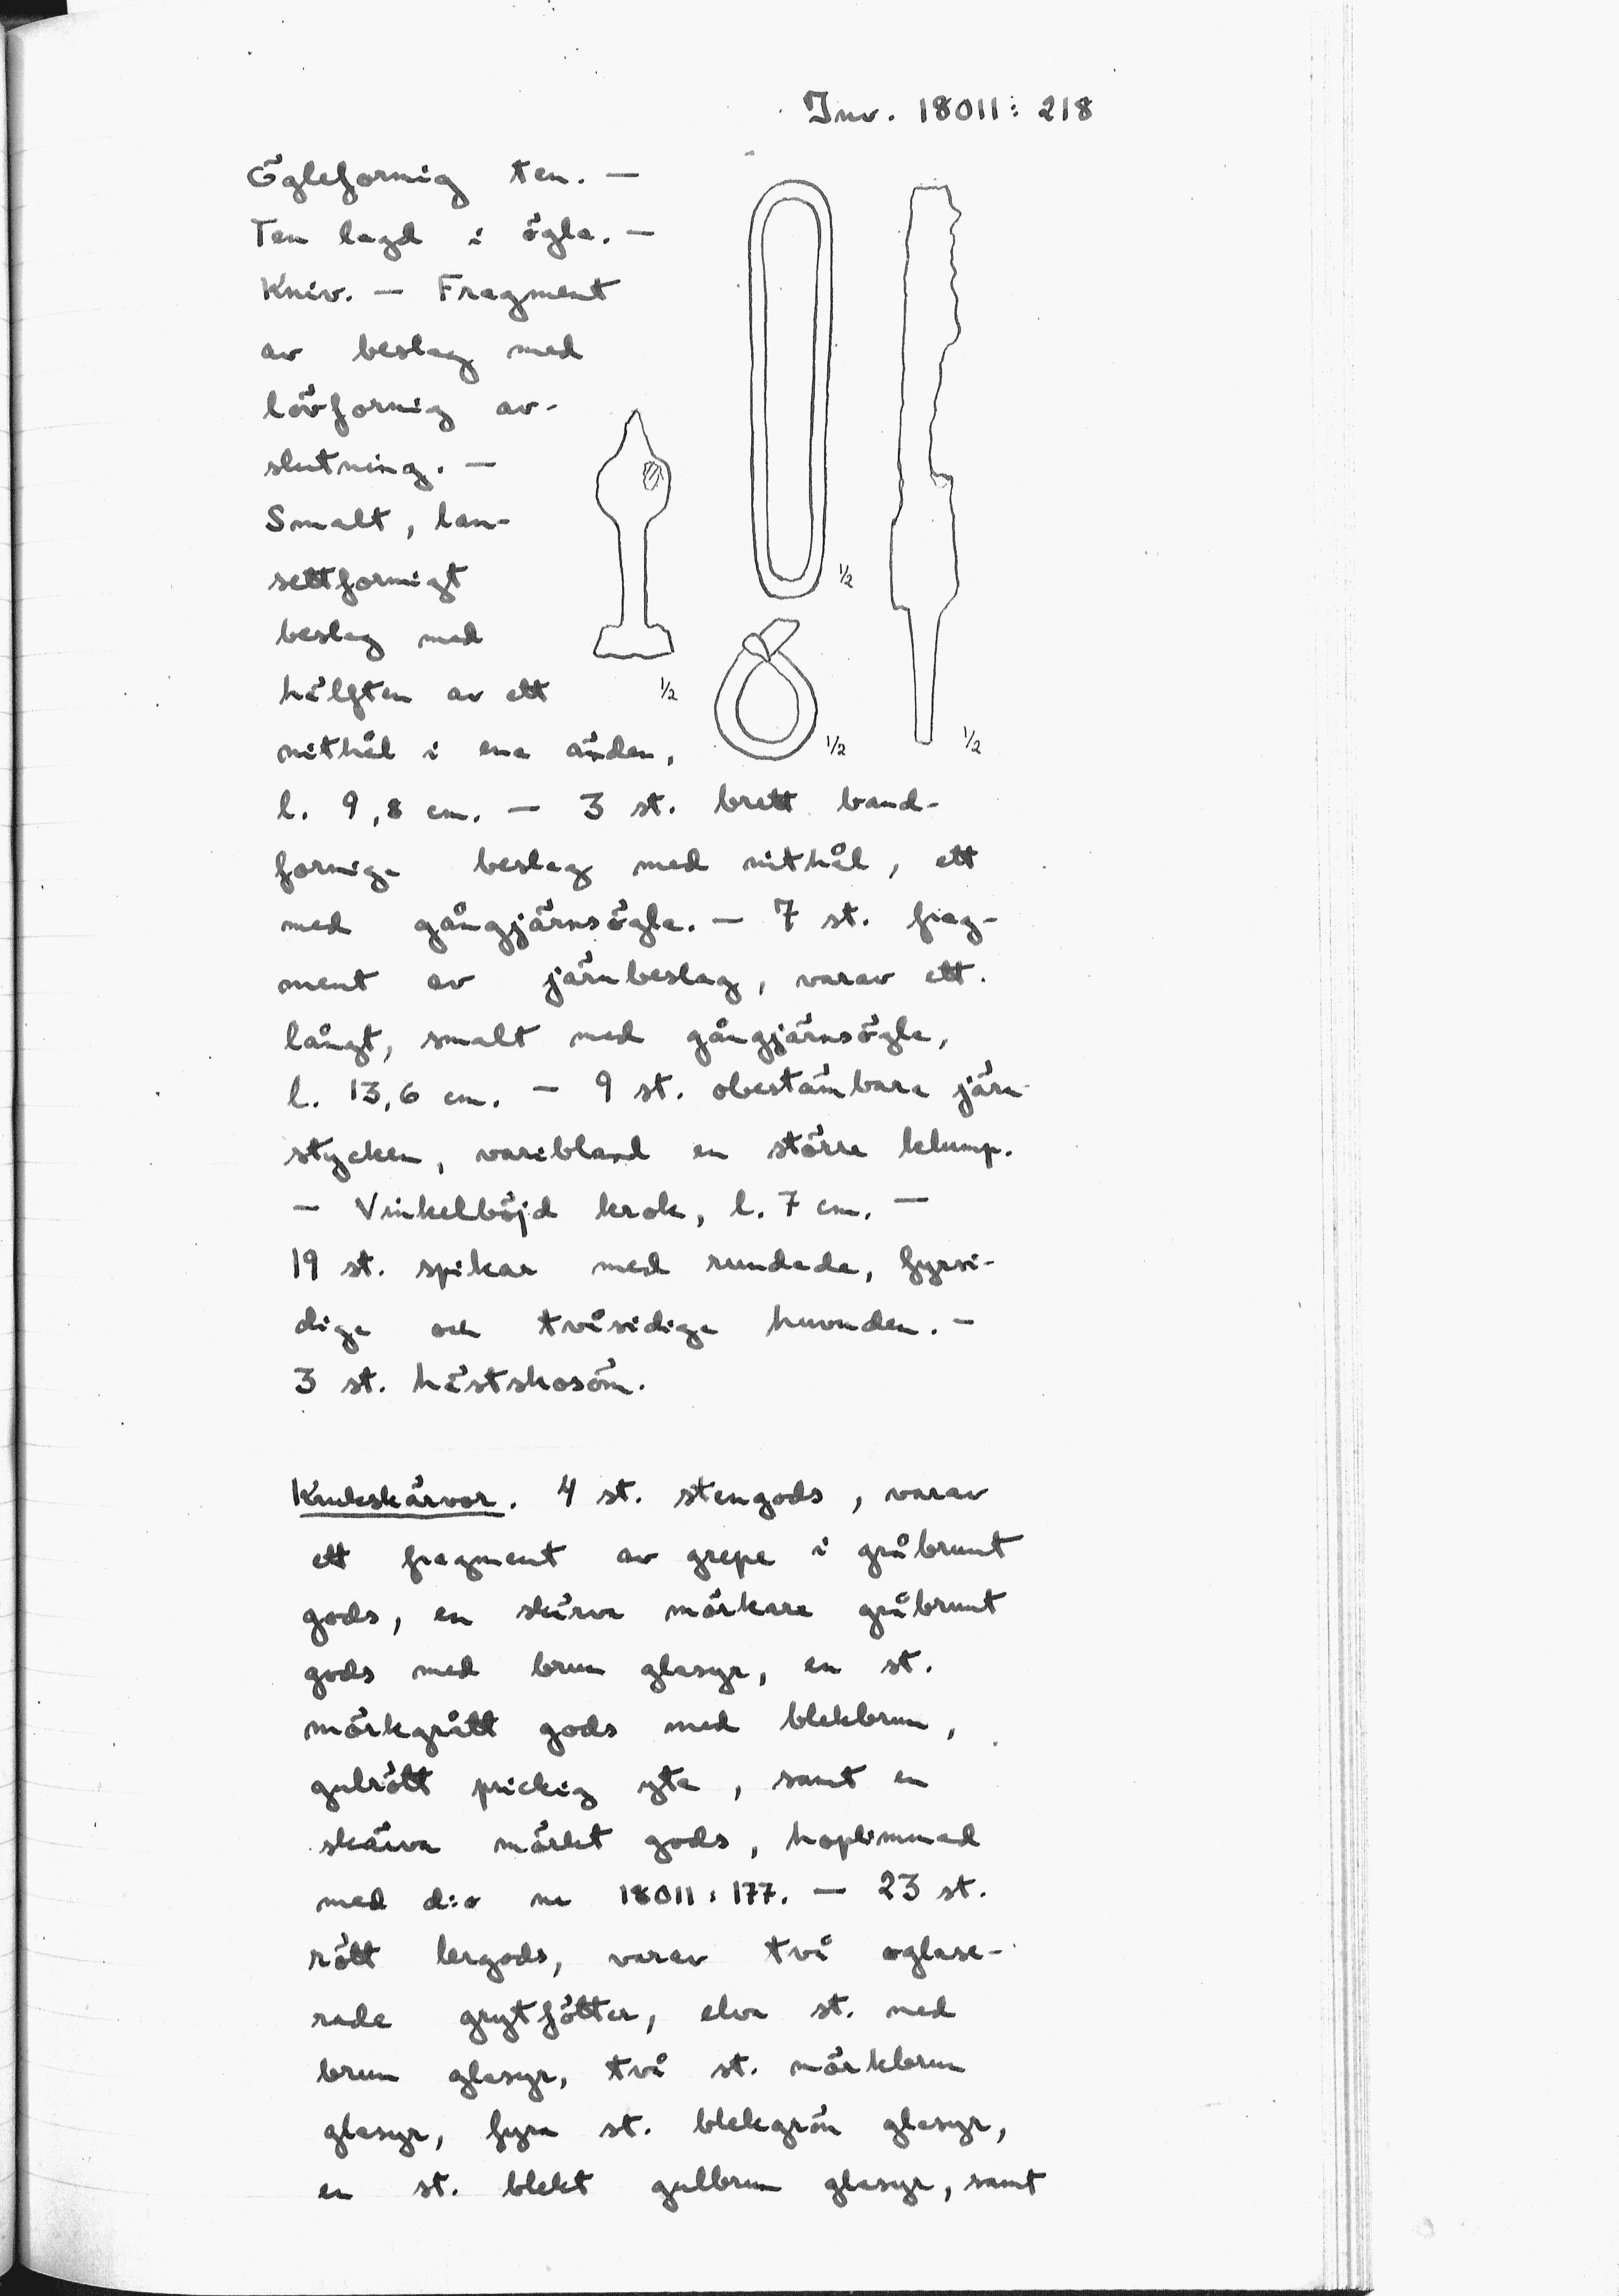 Inv. 18011: 218
Ögleformig ten. —
Ten lagd i ögla. —
Kniv. — Fragment
av beslag med
lövformig av-
slutning. —
Smalt, lan-
settformigt
beslag med
hälften av ett
nithål i ena änden,
l. 9,8 cm. — 3 st. brett band-
formiga beslag med nithål, ett
med gångjärnsögla. — 7 st. frag-
ment av järnbeslag, varav ett
långt, smalt med gångjärnsögla,
l. 13,6 cm. — 9 st. obestämbara järn-
stycken, varibland en större klump.
— Vinkelböjd krok, l. 7 cm. —
19 st. spikar med rundade, fyrsi-
diga och tvåsidiga huvuden. —
3 st. hästskosöm.
Krukskärvor. 4 st. stengods, varav
ett fragment av grepe i gråbrunt
gods, en skärva mörkare gråbrunt
gods med brun glasyr, en st.
mörkgrått gods med blekbrun,
gulrött prickig yta, samt en
skärva mörkt gods, hoplimmad
med d:o nr 18011:177. — 23 st.
rött lergods, varav två oglase-
rade grytfötter, elva st. med
brun glasyr, två st. mörkbrun
glasyr, fyra st. blekgrön glasyr,
en st. blekt gulbrun glasyr, samt
1/2
1/2
1/2
1/2